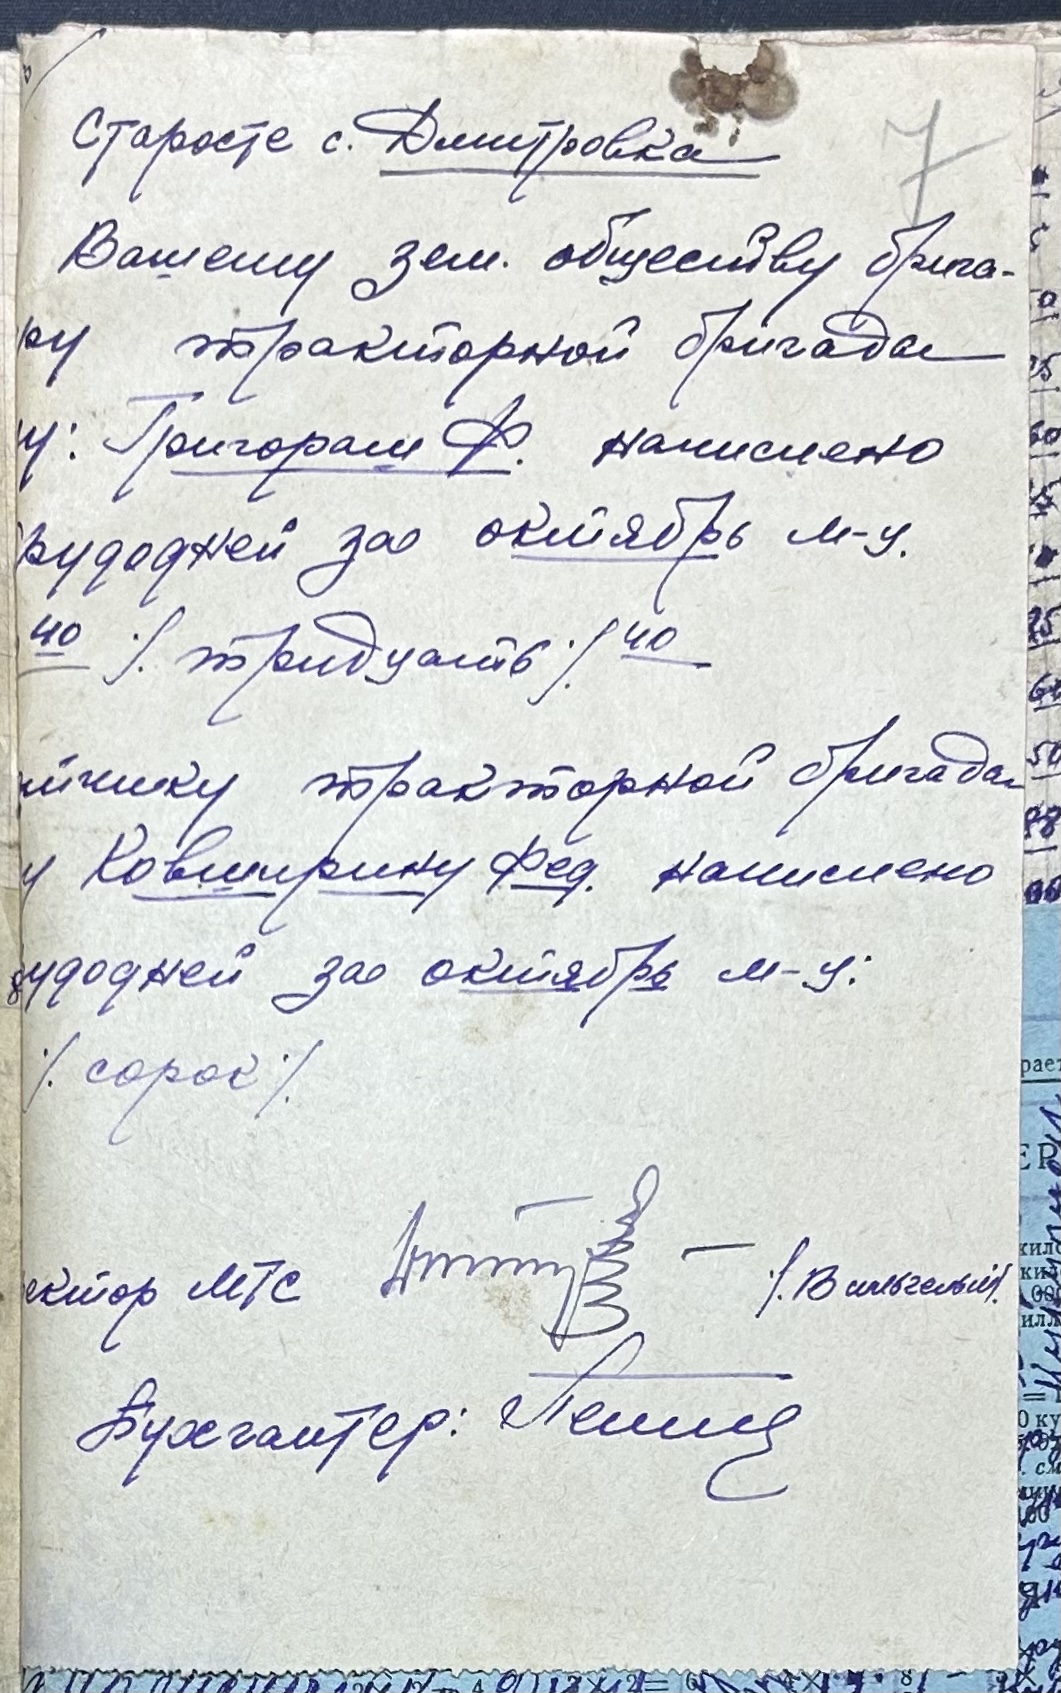 7
Старосте с. Дмитровка
Вашему зем. обществу брига-
ру тракторной бригады
у: Григораш Ф. начислено
рудодней за октябрь м-ц.
40 ./. тридцать ./. 40
тчику тракторной бригады
у Ковширину Фед. начислено
удодней за октябрь м-ц:
./. сорок ./.
ектор МТС ./. Вильгельм ./.
Бухгалтер: